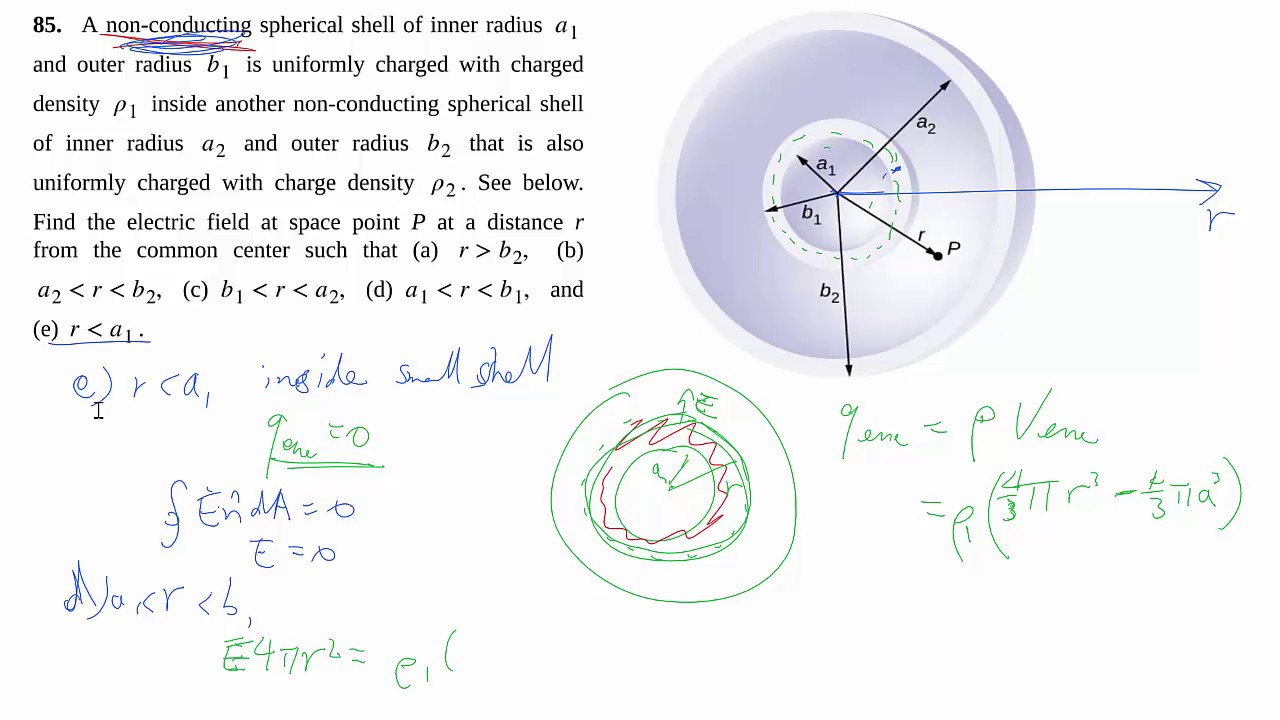 85. A non-conducting spherical shell of inner radius a₁
and outer radius b₁ is uniformly charged with charged
density ρ₁ inside another non-conducting spherical shell
of inner radius a₂ and outer radius b₂ that is also
uniformly charged with charge density ρ₂. See below.
Find the electric field at space point P at a distance r
from the common center such that (a) r > b₂, (b)
a₂ < r < b₂, (c) b₁ < r < a₂, (d) a₁ < r < b₁, and
(e) r < a₁.
a₂
a₁
b₁
r
P
b₂
r
e) r < a₁ inside small shell
q enc = 0
∮ E n̂ dA = 0
E = 0
d) a₁ < r < b₁
E 4πr² = ρ₁ (
E
a
r
q enc = ρ V enc
= ρ₁ (4/3 π r³ - 4/3 π a³)